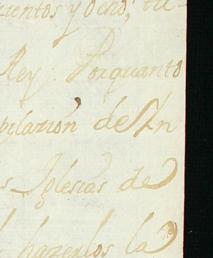 uentos y ocho; tu-
Rey. Porquanto
pilazion de Yn
s Iglesias de
hazerlos la